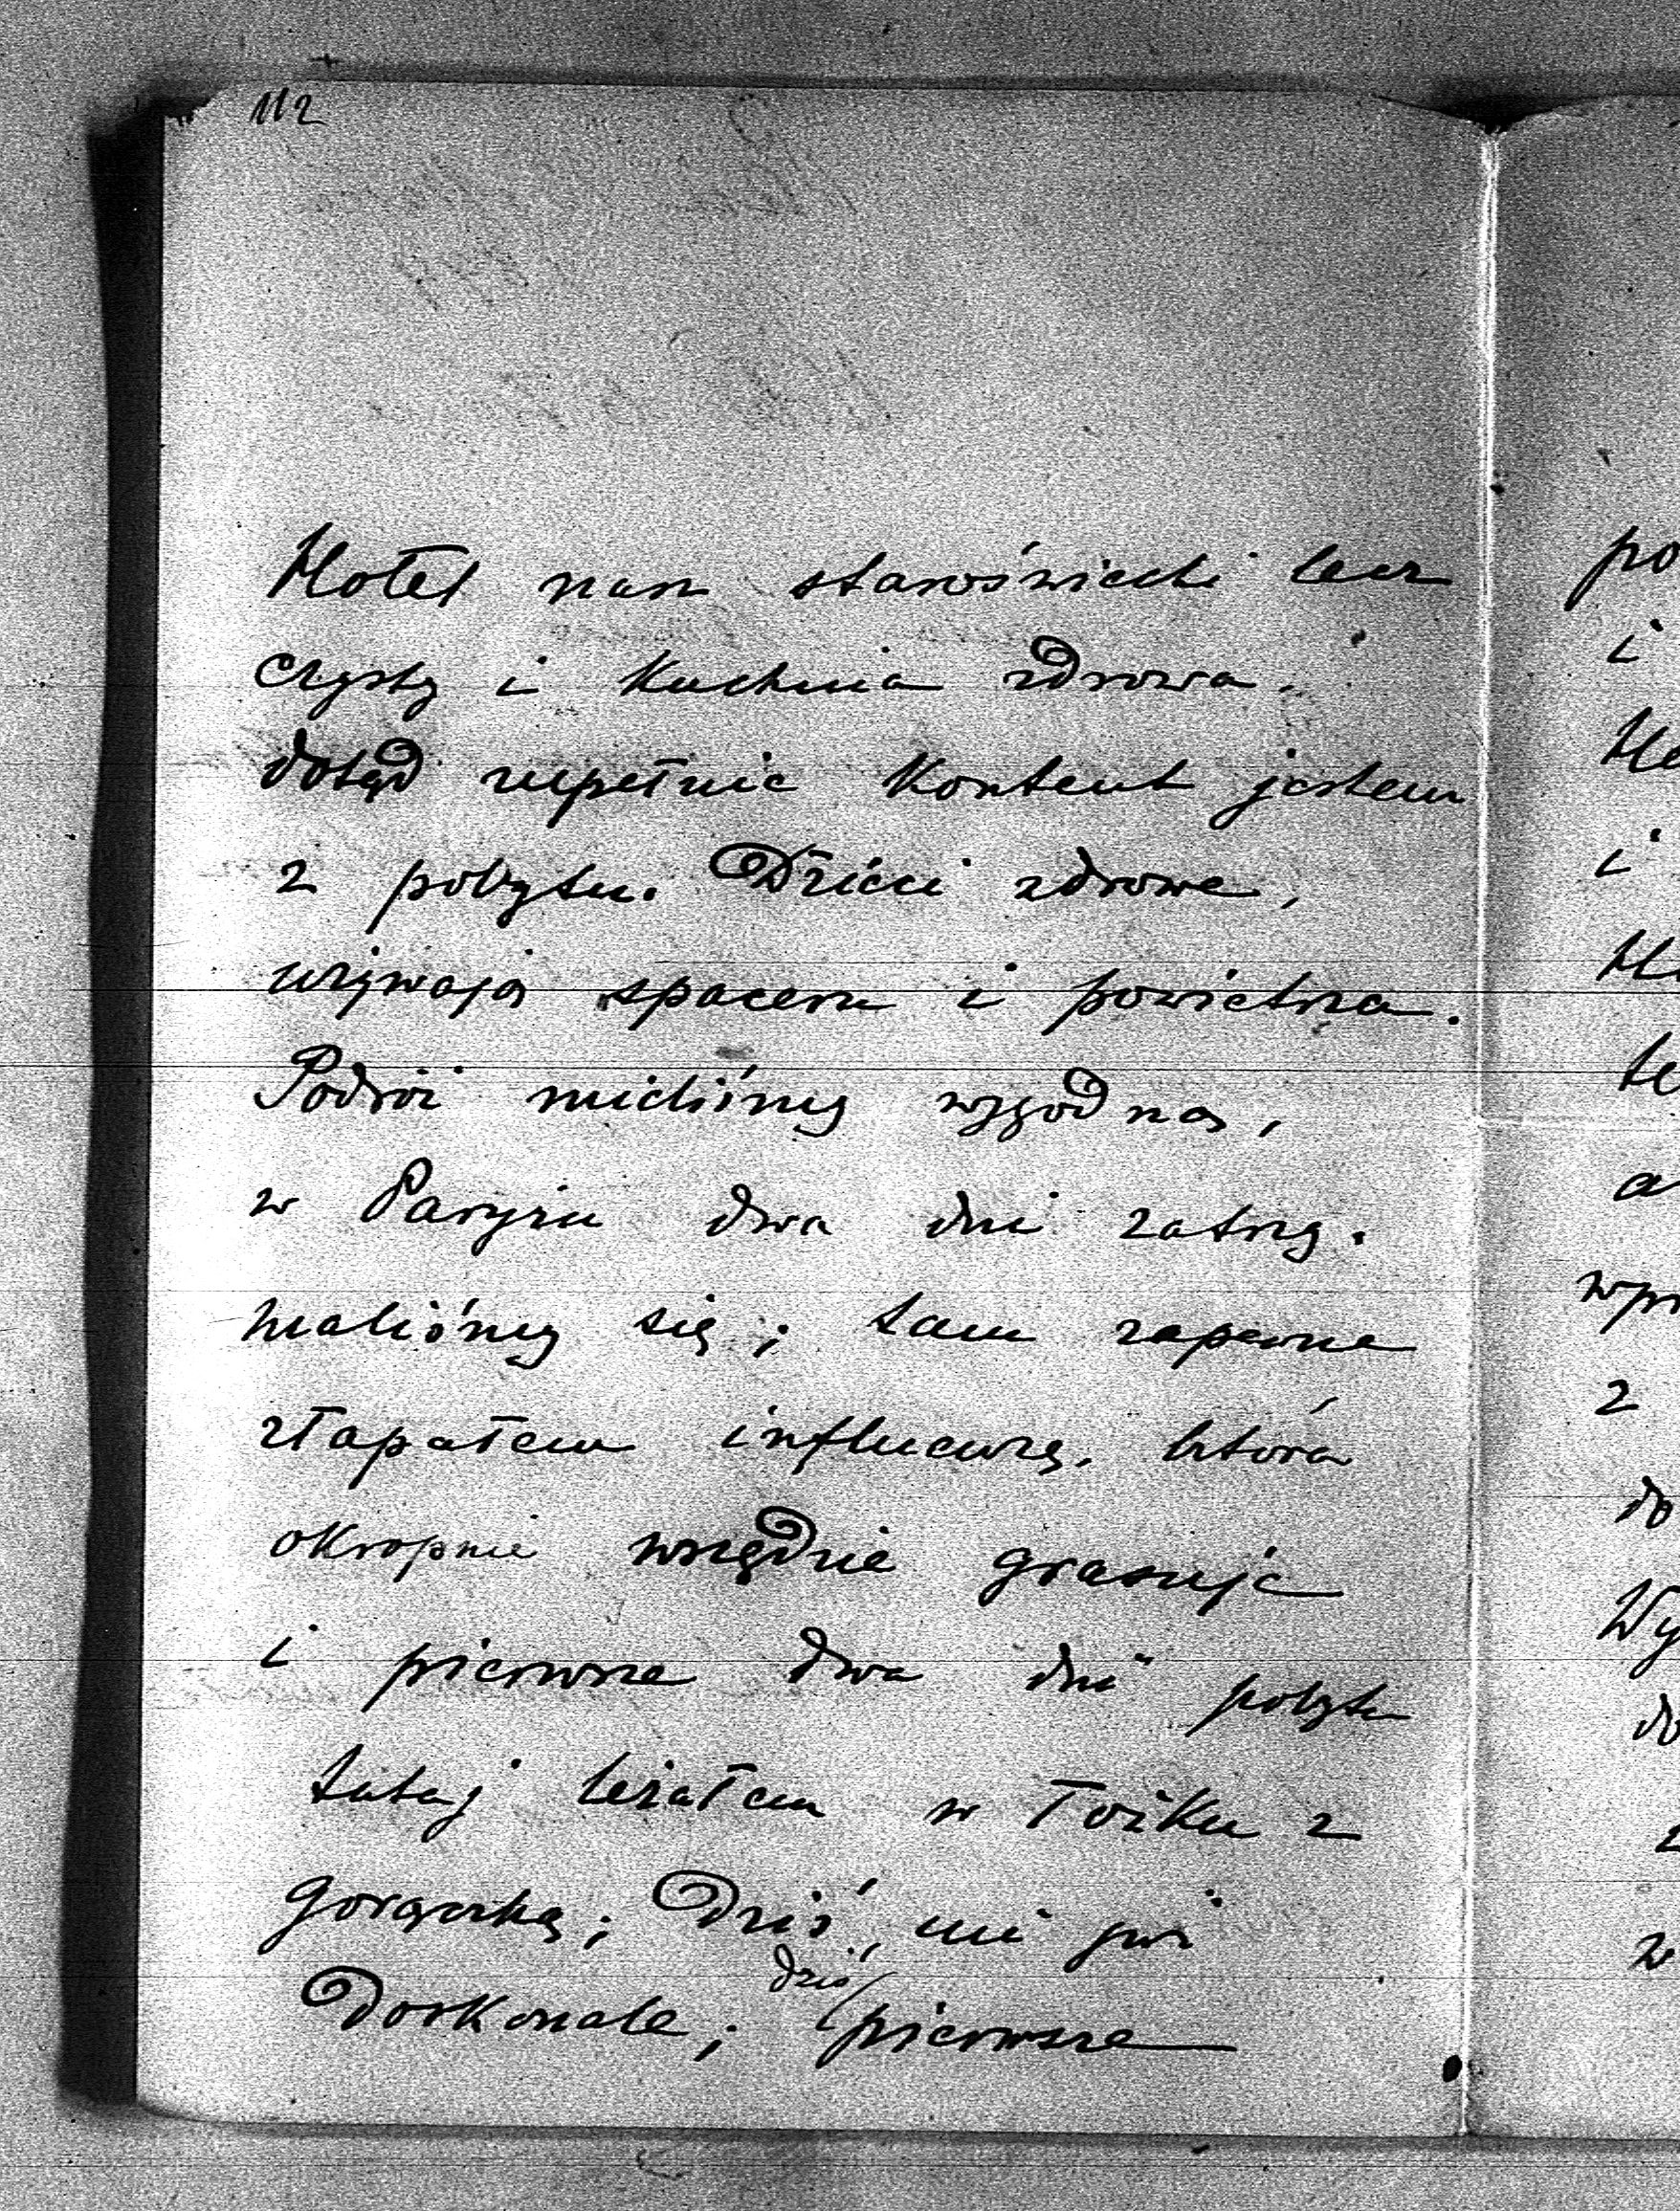 112
Hotel nasz staroświecki lecz
czysty i kuchnia zdrowa.
dotąd zupełnie kontent jestem
z pobytu. Dzieci zdrowe,
używają spaceru i powietrza.
Podróż mieliśmy wygodną,
w Paryżu dwa dni zatrzy-
maliśmy się; tam zapewne
złapałem influenzę, która
okropnie wszędzie grasuje
i pierwsze dwa dni pobytu
tutaj leżałem w łóżku z
gorączką; Dziś, mi już
doskonale; dziś pierwsze
po
i
i
le
a
wpr
z
do
Wy
do
z
w